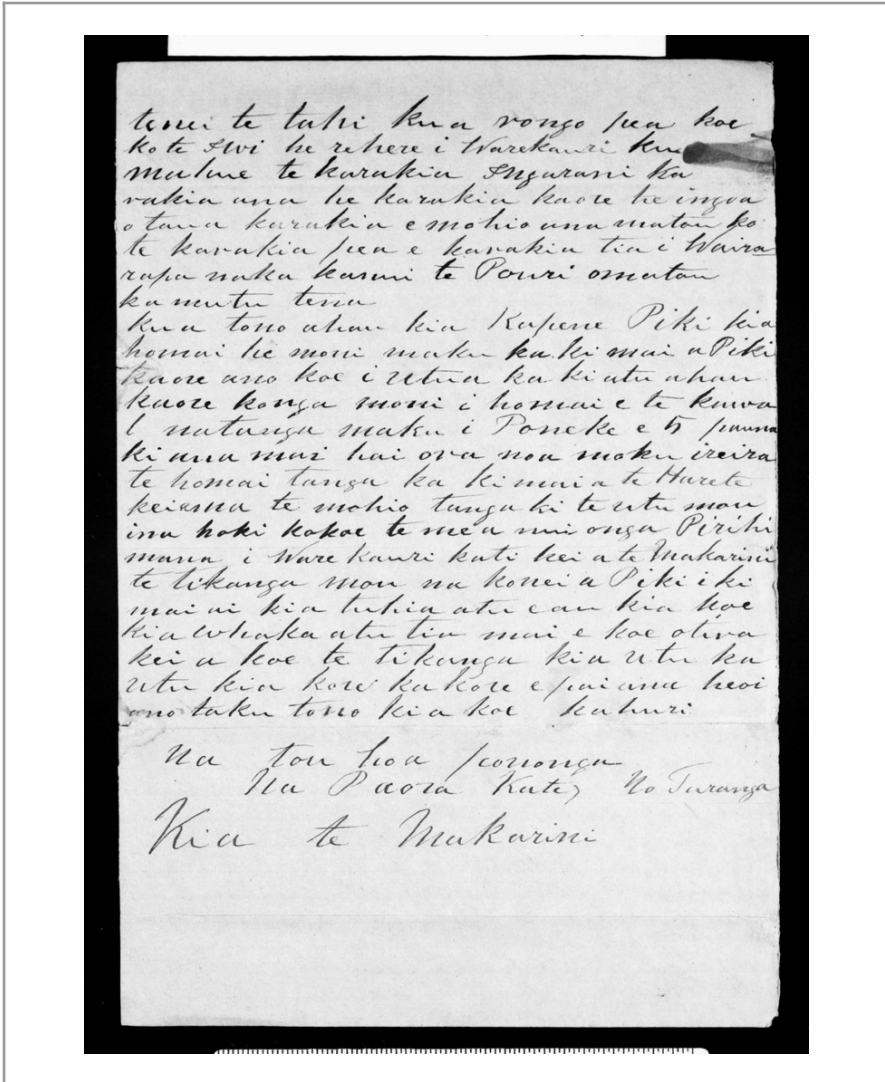 tenei te tahi kua rongo pea koe
ko te Iwi he rehere i Warekauri kua
mahue te karakia Ingarani ka
rakia ana he karakia kaore he ingoa
o tana karakia e mohio ana matou ko
te karakia pea e karakia tia i Waira
rapa naka kanui te Pouri o matou
ka mutu tena
kua tono ahau kia Kapene Piki kia
homai he moni maku ka ki mai a Piki
kaore ano koe i utua ka ki atu ahau
kaore konga moni i homai e te kawa
natanga maku i Poneke e 5 pauna
ki ana mai hai ora noa moku ireira
te homai tanga ka ki mai a te Harete
keiama te mohio tanga ki te utu mou
ina hoki kokoe te mea nui onga Pirihi
mana i Warekauri kati kei a te Makarini
te tikanga mou na konei a Piki i ki
mai ai kia tuhia atu e au kia koe
kia whaka atu tia mai e koe otira
kei a koe te tikanga kia utu ka
utu kia kore ka kore e pai ana heoi
ano taku tono kia koe ka huri
Na tou hoa pononga
Na Paora Kate, No Turanga
Kia te Makarini